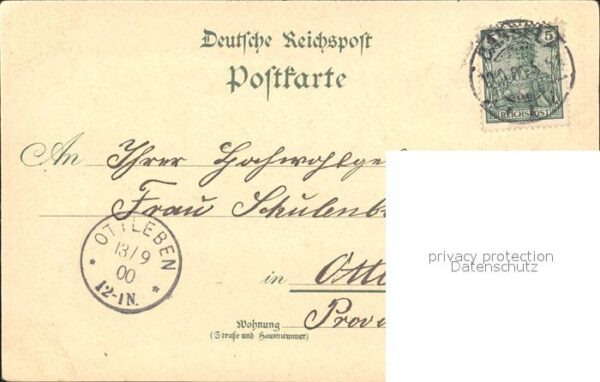 Deutsche Reichspost
Postkarte
5
REICHSPOST
An Ihrer Hochwohlge
Frau Schulenb
privacy protection
Datenschutz
OTTLEBEN
13/9
00
12-1N.
in Ottl
Wohnung
(Straße und Hausnummer)
Prov